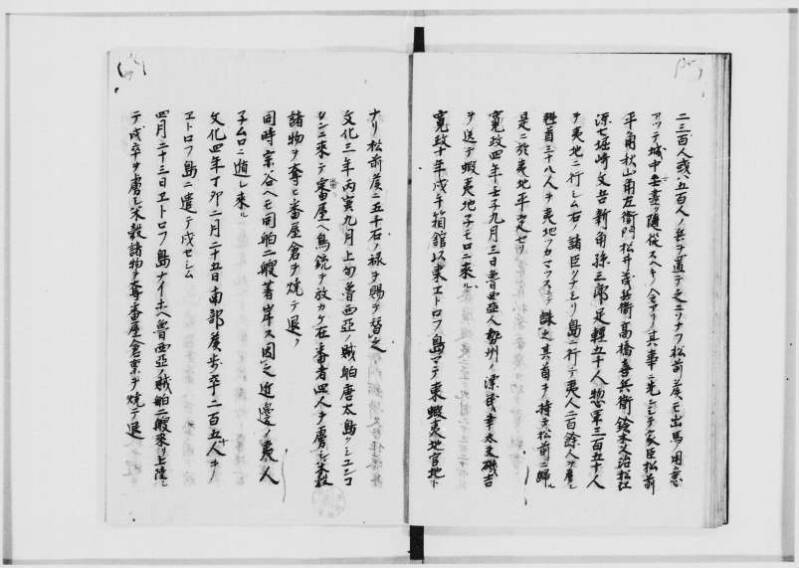 二三百人或ハ五百人ノ兵ヲ遣テ之ニソナフ松前矦モ出馬ノ用意
アツテ城中壱番隨從スヘキノヘキリ其事ニ先シテ家臣松前
平角秋山角左衛門松井茂兵衛高橋喜兵衛鈴木文治松江
源七堀崎文吾新角孫三郎足軽五十人惣軍三百五十人
ヲ夷地ニ行シム右ノ諸臣リナシリ島ニ行テ夷人二百餘人ヲ虜シ
種酋三十八人ヲ夷地ノカマツスニテ誅之其首ヲ持テ松前ニ歸ル
是ニ於夷地平定セリ
寛政四年壬子九月三日魯西亞人勢州ノ漂民幸太夫礒吉
ヲ送テ蝦夷地子モロニ来ル
寛政十年戊午箱館以東エトロフ島マテ東蝦夷地官地ト
ナリ松前矦ニ五千石ノ禄ヲ賜テ替之
文化三年丙寅九月上旬魯西亞ノ賊舶唐太島クシユンコ
タンニ来テ番屋ヘ鳥銃ヲ放カケ在番者四人ヲ虜シ米穀
諸物ヲ奪ヒ番屋倉ヲ焼テ退ク
同時宗谷ヘモ同舶二艘着岸ス因之近邊ノ夷人
子ムロニ逃レ来ル
文化四年丁卯二月二十五日南部矦歩卒二百五十人ヲ
エトロフ島ニ遣テ戍セシム
四月二十三日エトロフ島ナイホヘ魯西亞ノ賊舶二艘来リ上陸シ
テ戍卒ヲ虜シ米穀諸物ヲ奪番屋倉禀ヲ焼テ退